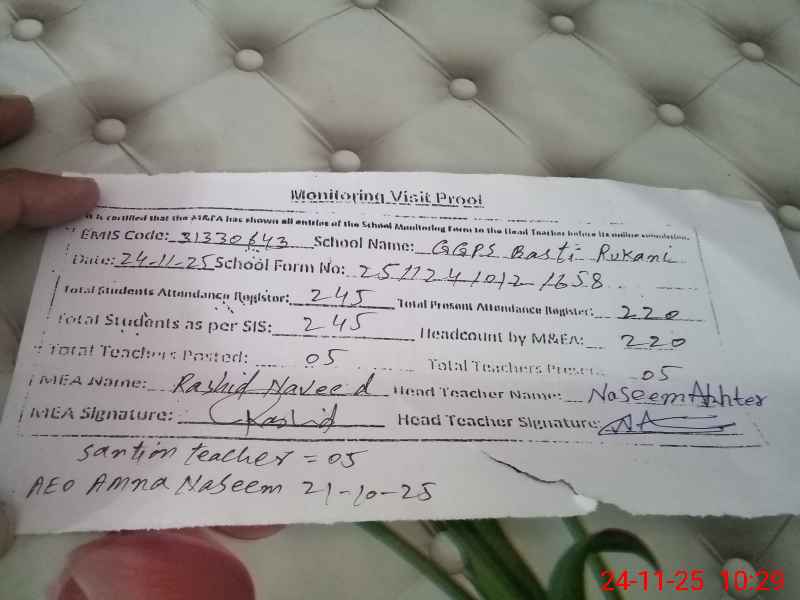 Monitoring Visit Proof
It is certified that the M&EA has shown all entries of the School Monitoring Form to the Head Teacher before its online submission.
EMIS Code: 31330643 School Name: GGPS Basti Rukani
Date: 24-11-25 School Form No: 25112410121658
Total Students Attendance Register: 245 Total Present Attendance Register: 220
Total Students as per SIS: 245 Headcount by M&EA: 220
Total Teachers Posted: 05 Total Teachers Present: 05
MEA Name: Rashid Naveed Head Teacher Name: Naseem Akhter
MEA Signature: Rashid Head Teacher Signature: NA
santion teacher = 05
AEO Amna Naseem 21-10-25
24-11-25 10:29